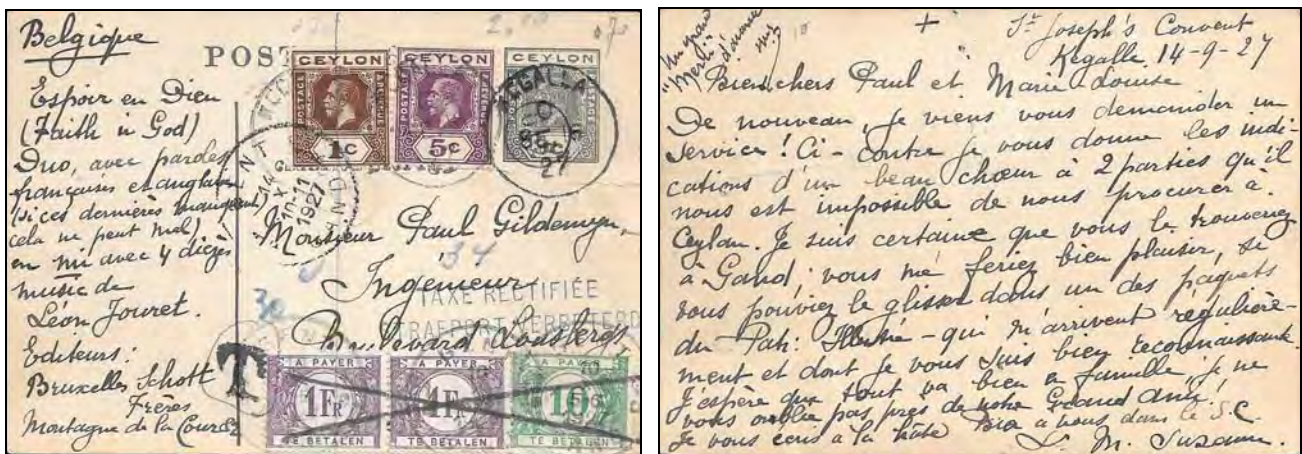 Belgique
POST
CEYLON
CEYLON
CEYLON
POSTAGE
POSTAGE
1c
5c
KEGALLA
SP
27
GENT
GAND
X
10-11
1927
Espoir en Dieu
(Faith in God)
Duo, avec paroles
françaises et anglaises
(si ces dernières manquent)
cela ne peut mal)
en mi avec 4 dièzes
music de
Léon Jouret.
Editeurs:
Bruxelles Schott
Frères
Montagne de la Cour 82
Monsieur Paul Gildemyn,
34
Ingénieur
30
TAXE RECTIFIÉE
TRAFPORT VERBETERD
Boulevard
T
A PAYER
1FR
TE BETALEN
A PAYER
1FR
TE BETALEN
A PAYER
10
TE BETALEN
Un grand
"Merci" d'avance
+
St Joseph's Convent
Kegalle 14-9-27
Bien chers Paul et Marie Louise
De nouveau, je viens vous demander un
service! Ci-contre je vous donne les indi-
cations d'un beau chœur à 2 parties qu'il
nous est impossible de nous procurer à
Ceylan. Je suis certaine que vous le trouverez
à Gand; vous me feriez bien plaisir, si
vous pouviez le glisser dans un des paquets
du Pat: Illustré - qui m'arrivent régulière-
ment et dont je vous suis bien reconnaissante.
J'espère que tout va bien en famille, je ne
vous oublie pas près de notre Grand Ami.
Je vous écris à la hâte Bien à vous dans le S.C.
S. M. Suzanne.